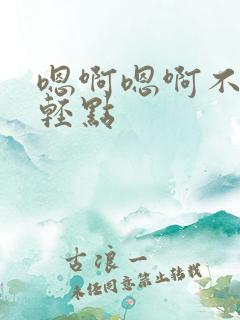 嗯啊嗯啊不
輕點
古浪一
未任同意禁止转载